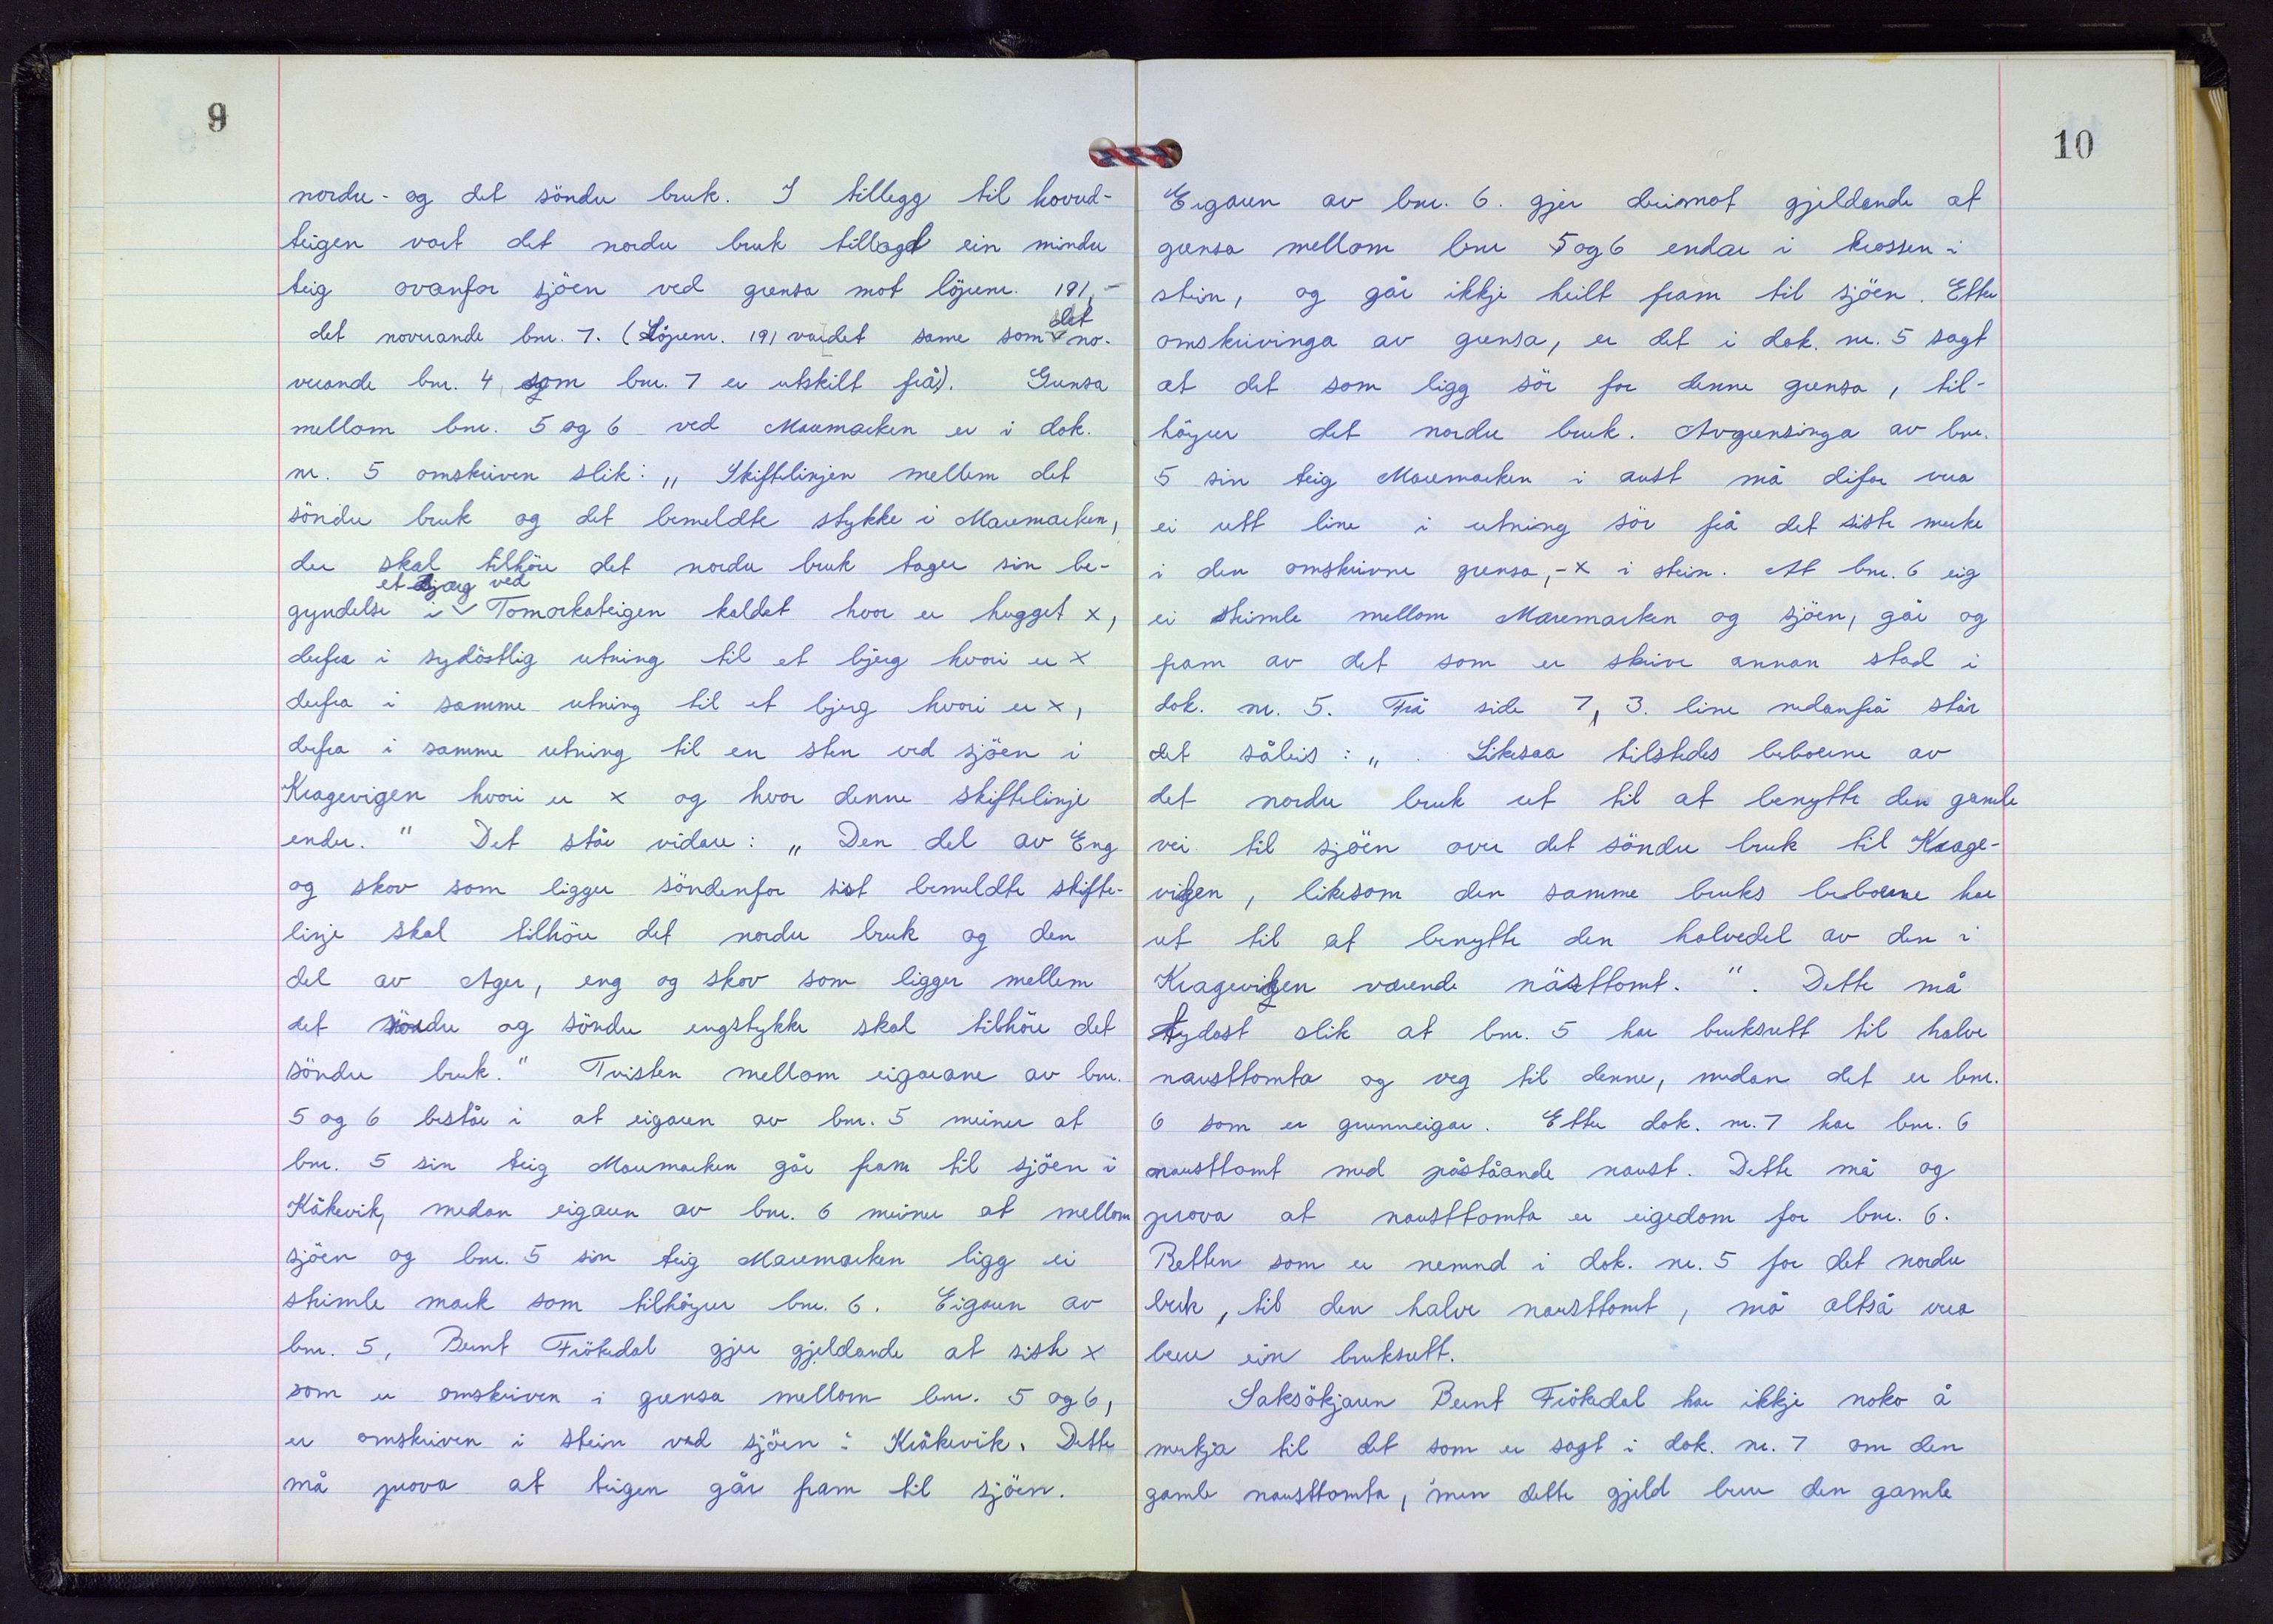 9
nordre - og det söndre bruk. I tillegg til hovud-
teigen vart det nordre bruk tillagt ein mindre
teig ovanfor sjöen ved grensa mot löpenr. 191, -
det noverande bnr. 7. (Löpenr. 191 var det same som det no-
verande bnr. 4, som bnr. 7 er utskilt frå). Grensa
mellom bnr. 5 og 6 ved Maremarken er i dok.
nr. 5 omskriven slik: „ Skiftelinjen mellem det
söndre bruk og det bemeldte stykke i Maremarken,
der skal tilhöre det nordre bruk tager sin be-
gyndelse i et bjærg ved Tomarkateigen kaldet hvor er hugget x,
derfra i sydöstlig retning til et bjerg hvori er x
derfra i samme retning til et bjerg hvori er x,
derfra i samme retning til en sten ved sjöen i
Kragevigen hvori er x og hvor denne skiftelinje
ender. " Det står vidare: „ Den del av Eng
og skov som ligger söndenfor sist bemeldte skifte-
linje skal tilhöre det nordre bruk og den
del av Ager, eng og skov som ligger mellem
det nördre og söndre engstykke skal tilhöre det
söndre bruk." Tvisten mellom eigarane av bnr.
5 og 6 består i at eigaren av bnr. 5 meiner at
bnr. 5 sin teig Maremarken går fram til sjöen i
Kråkevik, medan eigaren av bnr. 6 meiner at mellom
sjöen og bnr. 5 sin teig Maremarken ligg ei
strimle mark som tilhöyrer bnr. 6. Eigaren av
bnr. 5, Bernt Frökedal gjer gjeldande at siste x
som er omskriven i grensa mellom bnr. 5 og 6,
er omskriven i stein ved sjöen i Kråkevik. Dette
må prova at teigen går fram til sjöen.
10
Eigaren av bnr. 6. gjer deimot gjeldande at
grensa mellom bnr 5 og 6 endar i krossen i
stein, og går ikkje heilt fram til sjöen. Etter
omskrivinga av grensa, er det i dok. nr. 5 sagt
at det som ligg sör for denne grensa, til-
höyrer det nordre bruk. Avgrensinga av bnr.
5 sin teig Maremarken i aust må difor vera
ei rett line i retning sör frå det siste merke
i den omskrivne grensa, - x i stein. At bnr. 6 eig
ei strimle mellom Maremarken og sjöen, går og
fram av det som er skrive annan stad i
dok. nr. 5. Frå side 7, 3. line nedanfrå står
det såleis: „ . Likesaa tilstedes beboerne av
det nordre bruk ret til at benytte den gamle
vei til sjöen over det söndre bruk til Krage-
vigen, likesom den samme bruks beboerne har
ret til at benytte den halvedel av den i
Kragevigen værende nästtomt. ". Dette må
tydast slik at bnr. 5 har bruksrett til halve
nausttomta og veg til denne, medan det er bnr.
6 som er grunneigar. Etter dok. nr. 7 har bnr. 6
nausttomt med påståande naust. Dette må og
prova at nausttomta er eigedom for bnr. 6.
Retten som er nemnd i dok. nr. 5 for det nordre
bruk, til den halve nausttomt, må altså vera
berre ein bruksrett.
Saksökjaren Bernt Frökedal har ikkje noko å
merkja til det som er sagt i dok. nr. 7 om den
gamle nausttomta, men dette gjeld berre den gamle